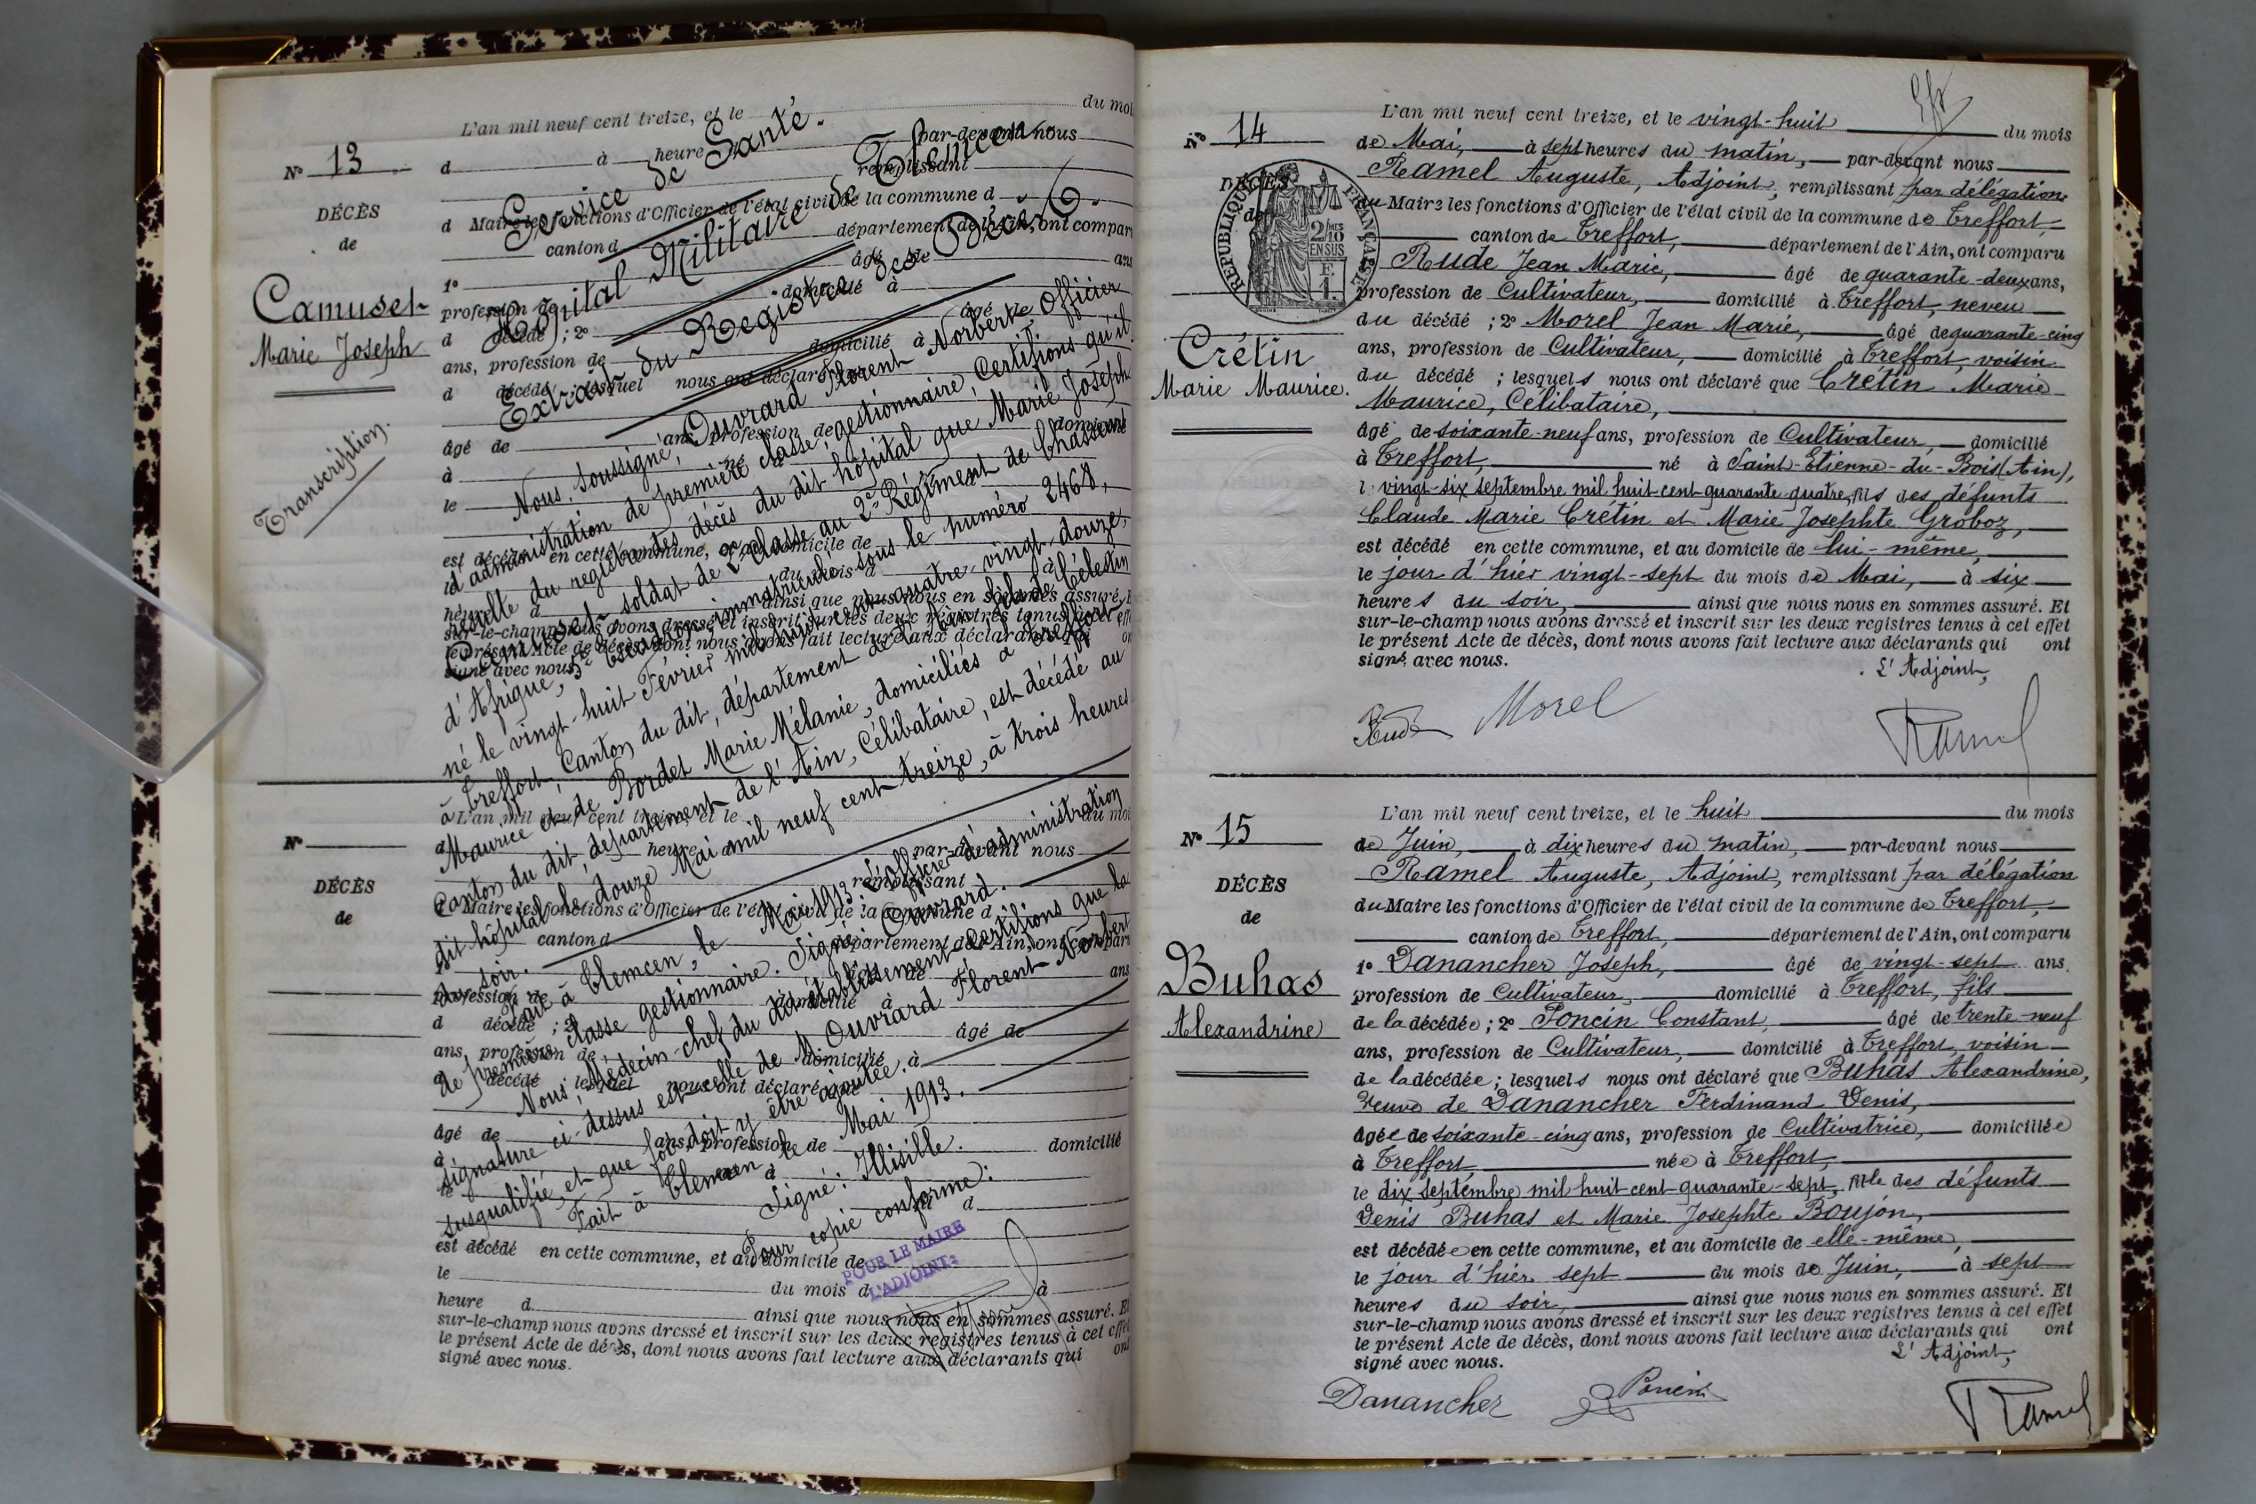 N° 13
DÉCÈS
de
Camuset
Marie Joseph
Transcription.
L'an mil neuf cent treize, et le du mois
d à heure par-devant nous
remplissant
d Maire les fonctions d'Officier de l'état civil de la commune d
canton d département de l'Ain, ont comparu
1° âgé de ans
profession de domicilié à
d décédé ; 2° âgé de
ans, profession de domicilié à
d décédé lesquel nous ont déclaré que
âgé de ans, profession de domicilié
à né à
le
est décédé en cette commune, et au domicile de
le du mois d à
heure d ainsi que nous nous en sommes assuré. Et
sur-le-champ nous avons dressé et inscrit sur les deux registres tenus à cet effet
le présent Acte de décès, dont nous avons fait lecture aux déclarants qui ont
signé avec nous.
Service de Santé.
Hôpital Militaire de Tlemcen
Extrait du Registre des Décès.
Nous, soussigné, Ouvrard Florent Norbert, Officier
d'administration de première classe, gestionnaire, Certifions qu'il
résulte du registre des décès du dit hôpital que Marie Joseph
Camuset, soldat de 2e classe au 2e Régiment de Chasseurs
d'Afrique, 5e Escadron, immatricule sous le numéro 2468,
né le vingt-huit Février mil huit cent quatre-vingt-douze,
à Treffort, Canton du dit, département de l'Ain, fils de Célestin
Maurice et de Bordet Marie Mélanie, domiciliés à Treffort
Canton du dit, département de l'Ain, Célibataire, est décédé au
dit hôpital le douze Mai mil neuf cent treize, à trois heures
du soir.
Fait à Tlemcen, le Mai 1913. L'officier d'administration
de première classe gestionnaire. Signé: Ouvrard.
Nous, Médecin-chef du dit établissement Certifions que la
signature ci-dessus est celle de M. Ouvrard Florent Norbert
susqualifié, et que foi doit y être ajoutée.
Fait à Tlemcen le Mai 1913.
Signé: Illisible.
Pour copie conforme:
POUR LE MAIRE
L'ADJOINT:
N°
DÉCÈS
de
L'an mil neuf cent treize, et le du mois
d heure par-devant nous
remplissant
d Maire les fonctions d'Officier de l'état civil de la commune d
canton d département de l'Ain, ont comparu
âgé de ans
profession de domicilié à
d décédé ; 2° âgé de
ans, profession de domicilié à
d décédé ; lesquel nous ont déclaré que
âgé de ans, profession de domicilié
à à
le d
est décédé en cette commune, et au domicile de
le du mois d à
heure d ainsi que nous nous en sommes assuré. Et
sur-le-champ nous avons dressé et inscrit sur les deux registres tenus à cet effet
le présent Acte de décès, dont nous avons fait lecture aux déclarants qui ont
signé avec nous.
N° 14
DÉCÈS
de
RÉPUBLIQUE FRANÇAISE
2/10
EN SUS
Crétin
Marie Maurice.
L'an mil neuf cent treize, et le vingt-huit du mois
de Mai, à sept heures du matin, par-devant nous
Ramel Auguste, Adjoint, remplissant par délégation
du Maire les fonctions d'Officier de l'état civil de la commune de Treffort,
canton de Treffort, département de l'Ain, ont comparu
Rude Jean Marie, âgé de quarante-deux ans,
profession de Cultivateur, domicilié à Treffort, neveu
du décédé ; 2° Morel Jean Marie, âgé de quarante-cinq
ans, profession de Cultivateur, domicilié à Treffort, voisin
du décédé ; lesquels nous ont déclaré que Crétin Marie
Maurice, Célibataire,
âgé de soixante-neuf ans, profession de Cultivateur, domicilié
à Treffort, né à Saint-Etienne-du-Bois (Ain),
l vingt-six septembre mil huit cent quarante-quatre, fils des défunts
Claude Marie Crétin et Marie Josephte Groboz,
est décédé en cette commune, et au domicile de lui-même,
le jour d'hier vingt-sept du mois de Mai, à six
heures du soir, ainsi que nous nous en sommes assuré. Et
sur-le-champ nous avons dressé et inscrit sur les deux registres tenus à cet effet
le présent Acte de décès, dont nous avons fait lecture aux déclarants qui ont
signé avec nous. L'Adjoint,
Rude Morel Ramel
N° 15
DÉCÈS
de
Buhas
Alexandrine
L'an mil neuf cent treize, et le huit du mois
de Juin, à dix heures du matin, par-devant nous
Ramel Auguste, Adjoint, remplissant par délégation
du Maire les fonctions d'Officier de l'état civil de la commune de Treffort,
canton de Treffort, département de l'Ain, ont comparu
1° Danancher Joseph, âgé de vingt-sept ans
profession de Cultivateur, domicilié à Treffort, fils
de la décédée ; 2° Poncin Constant, âgé de trente-neuf
ans, profession de Cultivateur, domicilié à Treffort, voisin
de la décédée ; lesquels nous ont déclaré que Buhas Alexandrine,
Veuve de Danancher Ferdinand Denis,
âgée de soixante-cinq ans, profession de Cultivatrice, domiciliée
à Treffort, née à Treffort,
le dix septembre mil huit cent quarante-sept, fille des défunts
Denis Buhas et Marie Josephte Boujon,
est décédée en cette commune, et au domicile de elle-même,
le jour d'hier sept du mois de Juin, à sept
heures du soir, ainsi que nous nous en sommes assuré. Et
sur-le-champ nous avons dressé et inscrit sur les deux registres tenus à cet effet
le présent Acte de décès, dont nous avons fait lecture aux déclarants qui ont
signé avec nous. L'Adjoint,
Danancher Poncin Ramel